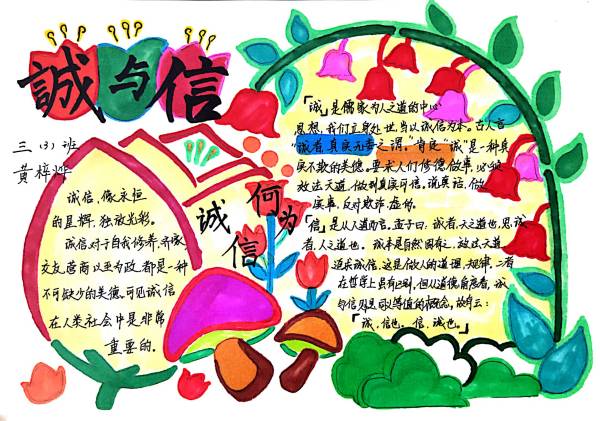 誠与信
三(3)班
黄梓烨
诚信,像永恒
的星辉,独放光彩。
诚信对于自我修养,齐家,
交友营商以至为政,都是一种
不可缺少的美德,可见诚信
在人类社会中是非常
重要的。
何为
诚信
「诚」是儒家为人之道的中心
思想,我们立身处世,当以诚信为本。古人言
"诚者,真实无妄之谓。"肯定"诚"是一种真
实不欺的美德。要求人们修德做事,必须
效法天道,做到真实可信。说真话,做
实事,反对欺诈、虚伪。
「信」是从人道而言,孟子曰:诚者,天之道也,思诚
者,人之道也。诚本是自然固有之,效法天道
追求诚信,这是做人的道理、规律,二者
在哲学上虽有区别,但从道德角度看,诚
与信则是同义等值的概念,故有云:
「诚,信也。信,诚也。」